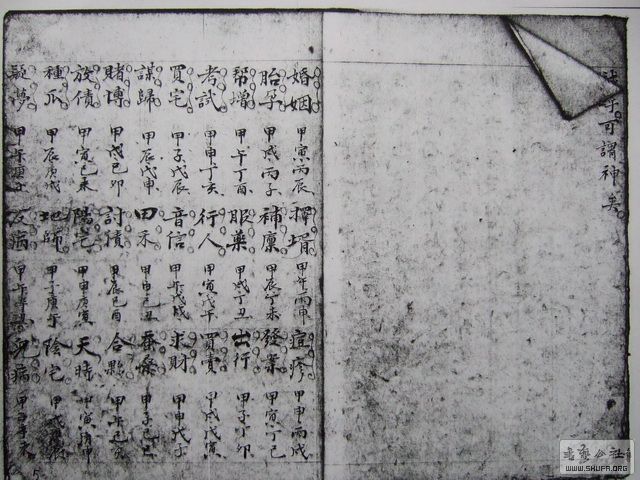 可謂神矣
婚姻 甲寅丙辰 擇壻 甲午丙申 痘疹 甲申丙戌
胎孕 甲戌丙子 補廪 甲辰丁未 發案 甲寅丁巳
帮增 甲午丁酉 服藥 甲戌丁丑 出行 甲子丁卯
考試 甲申丁亥 行人 甲寅戊午 買賣 甲戌戊寅
買宅 甲子戊辰 音信 甲午戊戌 求財 甲申戊子
謀歸 甲辰戊申 田禾 甲申己丑 甲子己巳
賭博 甲戌己卯 討債 甲辰己酉 合夥 甲午己亥
放債 甲寅己未 陽宅 甲申庚寅 天時 甲寅庚申
種瓜 甲辰庚戌 地師 甲子庚午 陰宅 甲戌
疑夢 甲午庚子 病 甲午 病 甲子
WWW.SHUFA.ORG